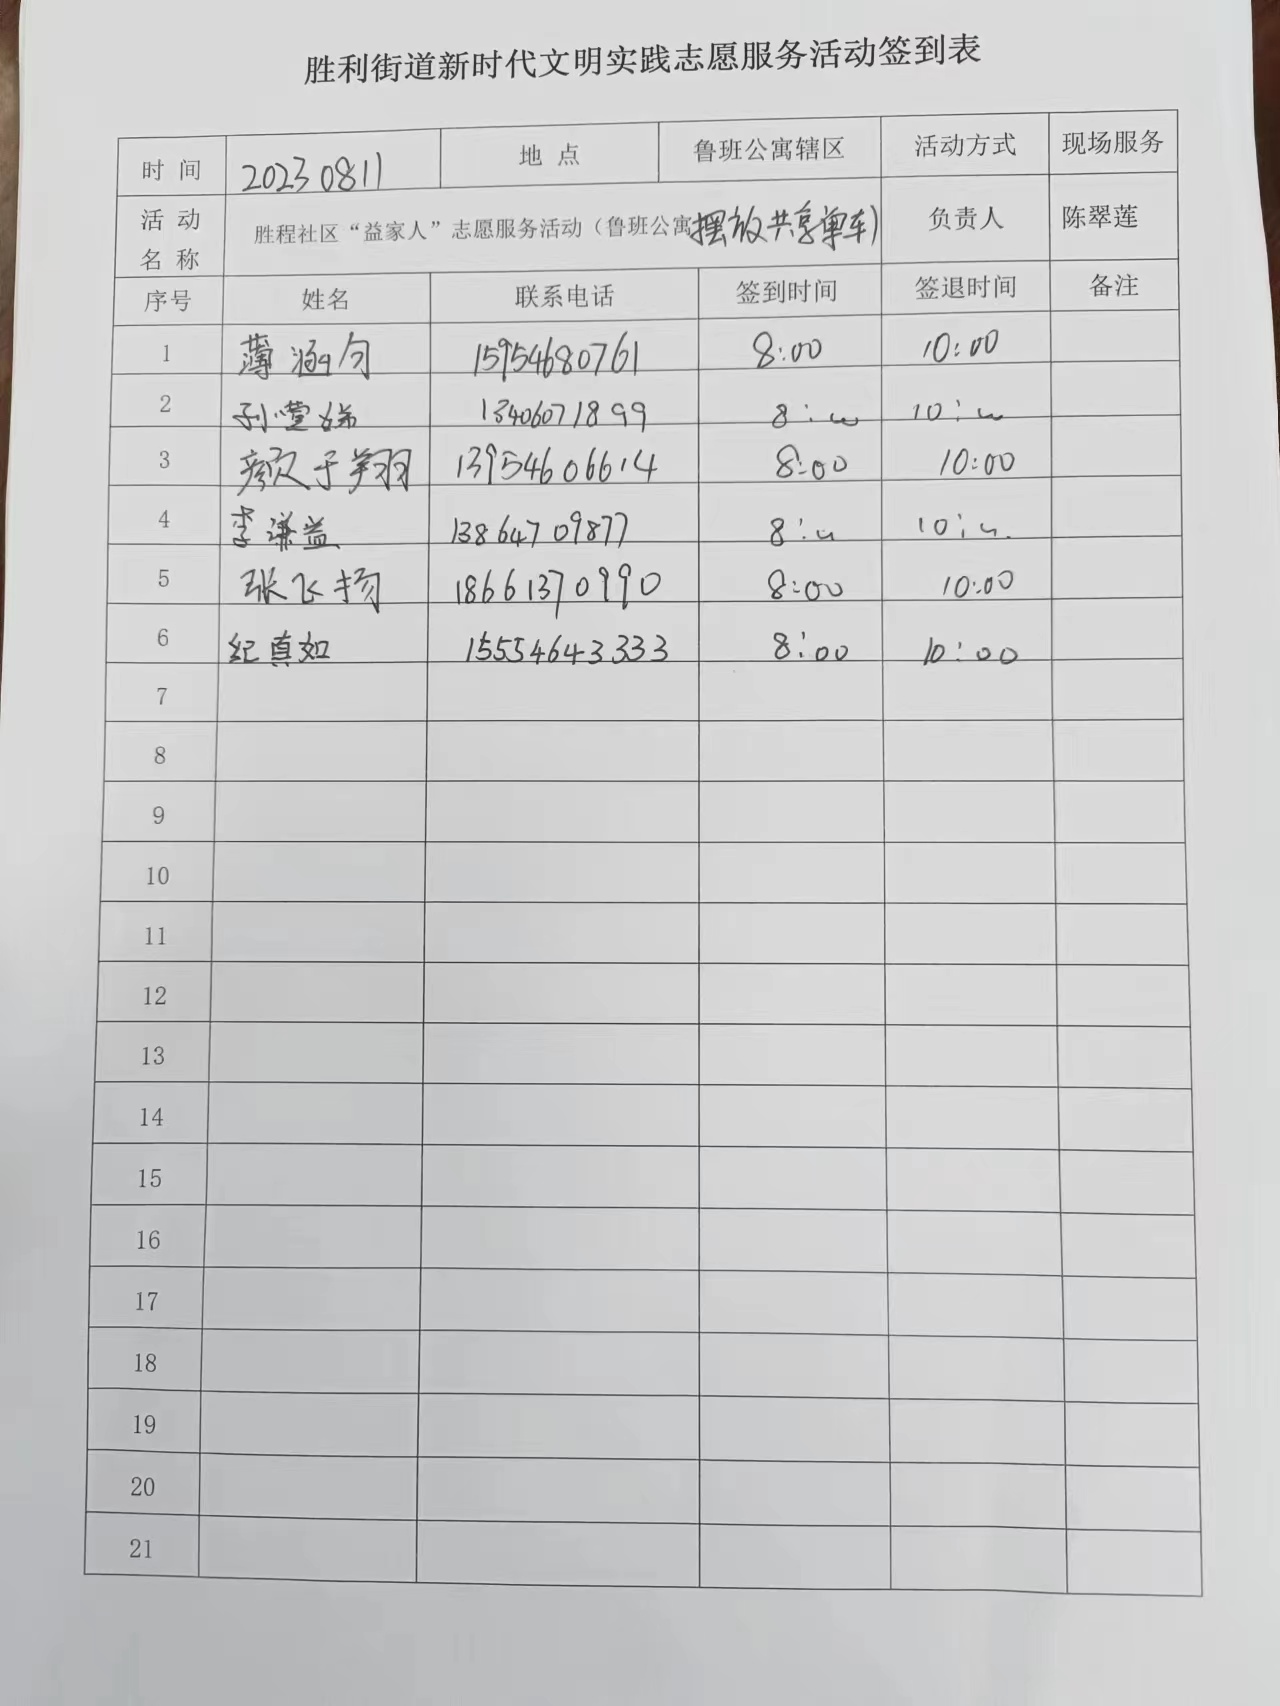 胜利街道新时代文明实践志愿服务活动签到表
时间 20230811 地点 鲁班公寓辖区 活动方式 现场服务
活动名称 胜程社区“益家人”志愿服务活动（鲁班公寓摆放共享单车） 负责人 陈翠莲
序号 姓名 联系电话 签到时间 签退时间 备注
1 薄涵匀 15954680761 8:00 10:00
2 孙萱娣 13406071899 8:00 10:00
3 颜于翔 13954606614 8:00 10:00
4 李谦益 13864709877 8:00 10:00
5 张飞扬 18661370990 8:00 10:00
6 纪真如 15554643333 8:00 10:00
7
8
9
10
11
12
13
14
15
16
17
18
19
20
21